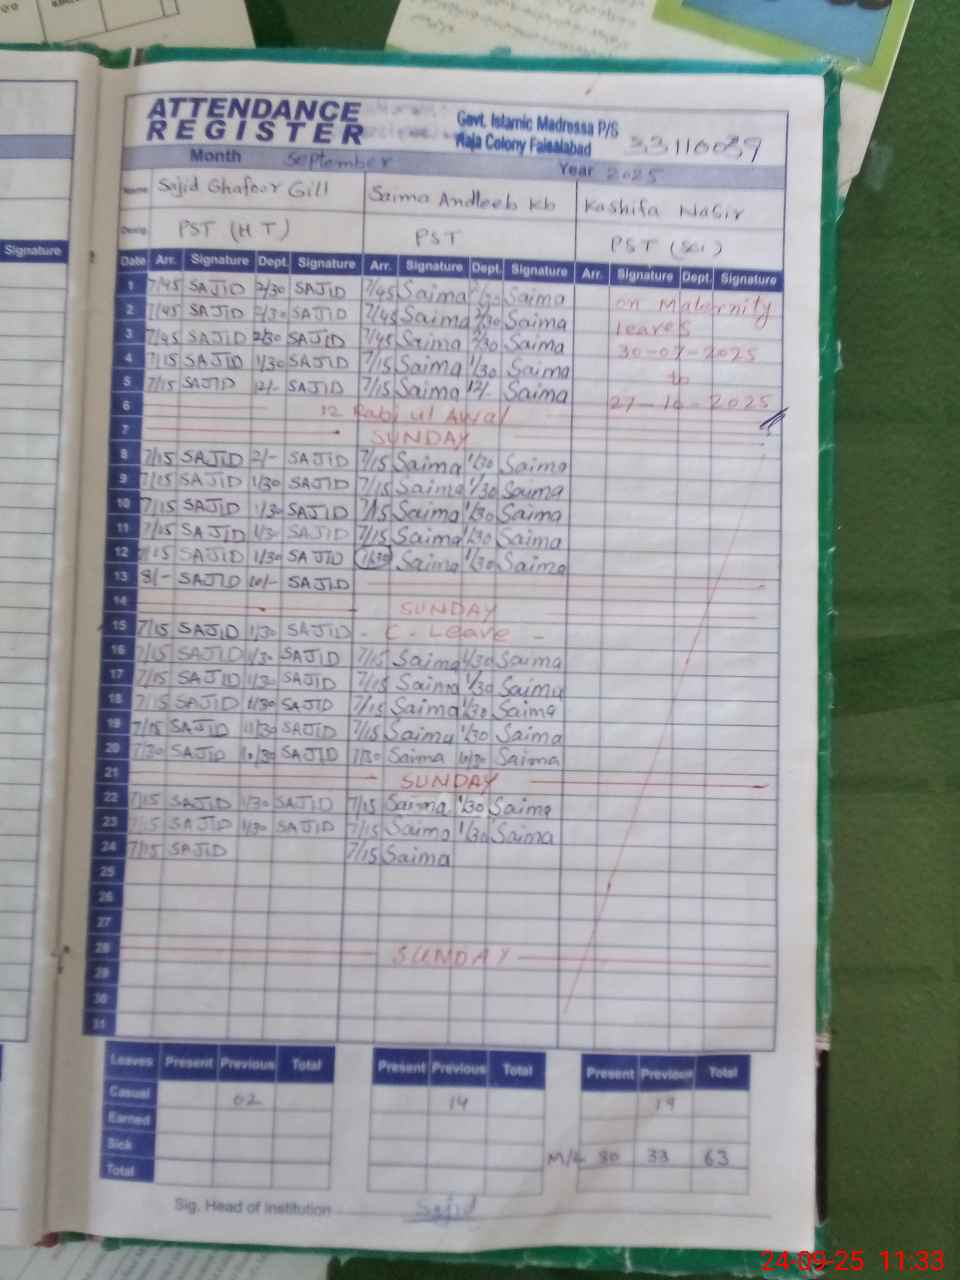 ATTENDANCE
REGISTER
Govt. Islamic Madressa P/S
Raja Colony Faisalabad
33110039
Month September Year 2025
Name Sajid Ghafoor Gill Saima Andleeb Kb Kashifa Nasir
Desig. PST (H T) PST PST
Signature
Date Arr. Signature Dept. Signature Arr. Signature Dept. Signature Arr. Signature Dept. Signature
1 7/45 SAJID 2/30 SAJID 7/45 Saima 2/30 Saima on Maternity
2 7/45 SAJID 2/30 SAJID 7/45 Saima 2/30 Saima leaves
3 7/45 SAJID 2/30 SAJID 7/45 Saima 2/30 Saima 30-07-2025
4 7/15 SAJID 1/30 SAJID 7/15 Saima 1/30 Saima to
5 7/15 SAJID 12/- SAJID 7/15 Saima 12/- Saima 27-10-2025
6 12 Rabi ul Awal
7 SUNDAY
8 7/15 SAJID 2/- SAJID 7/15 Saima 1/30 Saima
9 7/15 SAJID 1/30 SAJID 7/15 Saima 1/30 Saima
10 7/15 SAJID 1/30 SAJID 7/15 Saima 1/30 Saima
11 7/15 SAJID 1/30 SAJID 7/15 Saima 1/30 Saima
12 7/15 SAJID 1/30 SAJID Saima 1/30 Saima
13 8/- SAJID 10/- SAJID
14 SUNDAY
15 7/15 SAJID 1/30 SAJID - C - Leave -
16 7/15 SAJID 1/30 SAJID 7/15 Saima 1/30 Saima
17 7/15 SAJID 1/30 SAJID 7/15 Saima 1/30 Saima
18 7/15 SAJID 1/30 SAJID 7/15 Saima 1/30 Saima
19 7/15 SAJID 11/30 SAJID 7/15 Saima 1/30 Saima
20 7/30 SAJID 10/30 SAJID 7/30 Saima 10/30 Saima
21 SUNDAY
22 7/15 SAJID 1/30 SAJID 7/15 Saima 1/30 Saima
23 7/15 SAJID 1/30 SAJID 7/15 Saima 1/30 Saima
24 7/15 SAJID 7/15 Saima
25
26
27
28 SUNDAY
29
30
31
Leaves Present Previous Total Present Previous Total Present Previous Total
Casual 02 14 19
Earned
Sick M/L 30 33 63
Total
Sig. Head of Institution Sajid
24-09-25 11:33